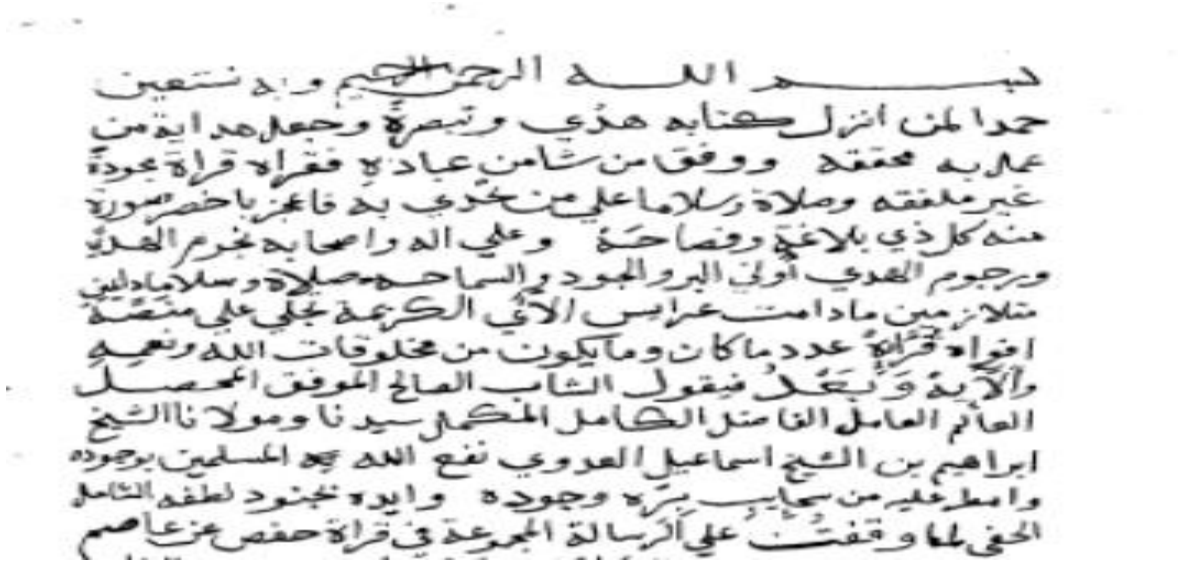 بسم الله الرحمن الرحيم وبه نستعين
حمدا لمن انزل كتابه هدي وتبصرةً وجعل هداية من
عمل به محققه ووفق من شا من عباده فقراه قراة مجودةً
غير ملفقه وصلاة وسلاما علي من تحدي به فاعجز باخصر سورة
منه كل ذي بلاغةٍ وفصاحة وعلي اله واصحابه نجوم الهدي
ورجوم العدي أولي البر والجود والسماحه صلاة وسلاما دايمين
متلازمين مادامت عرايس الآي الكريمة تجلي علي منصّة
افواه قُرّاءٍ عدد ما كان وما يكون من مخلوقات الله ونعمه
وآلايه وَبَعْدُ فيقول الشاب الصالح الموفق المحصل
العالم العامل الفاضل الكامل المكمل سيدنا ومولانا الشيخ
ابراهيم بن الشيخ اسماعيل العدوي نفع الله به المسلمين بوجوده
وامطر عليه من سحايب بِرّه وجوده وايده بجنود لطفه الشامل
الخفي لما وقفتُ علي الرسالة المجموعة في قراة حفص عن عاصم